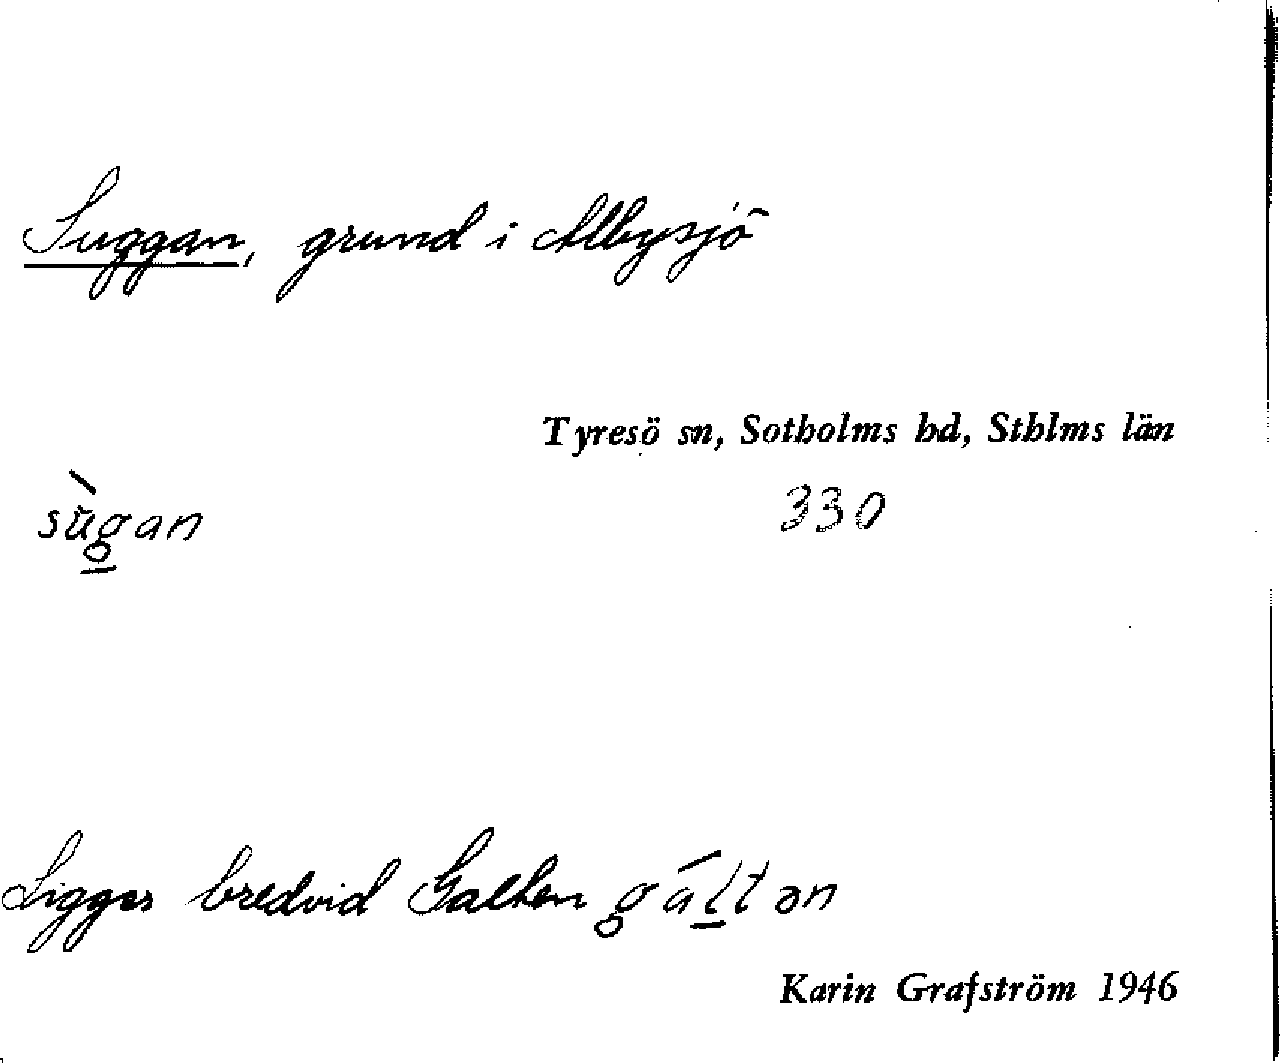 Suggan, grund i Albysjö
Tyresö sn, Sotholms hd, Sthlms län
sùg̱an
330
Ligger bredvid Galten gáḻtən
Karin Grafström 1946